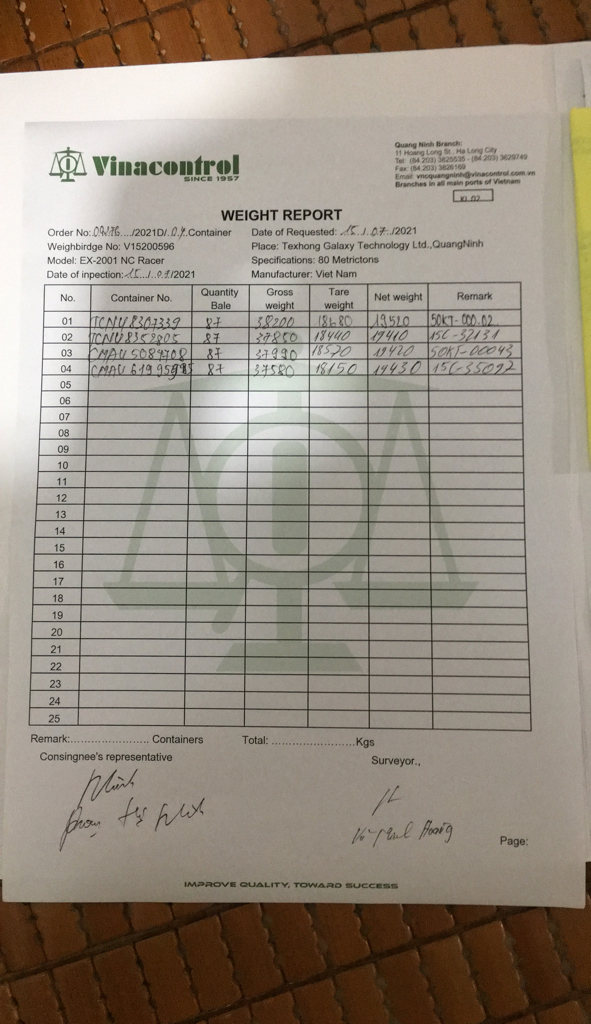 Vinacontrol
SINCE 1957
Quang Ninh Branch:
11 Hoang Long St., Ha Long City
Tel: (84.203) 3825535 - (84.203) 3829749
Fax: (84.203) 3826169
Email: vncquangninh@vinacontrol.com.vn
Branches in all main ports of Vietnam
KL 02
WEIGHT REPORT
Order No: /2021D/ Container Date of Requested: 15/07/2021
Weighbirdge No: V15200596 Place: Texhong Galaxy Technology Ltd.,QuangNinh
Model: EX-2001 NC Racer Specifications: 80 Metrictons
Date of inpection: 15/07/2021 Manufacturer: Viet Nam
No. Container No. Quantity Bale Gross weight Tare weight Net weight Remark
01 TCNU8307339 87 38200 18680 19520 50KT-000.02
02 TCNU8352805 87 37850 18440 19410 15C-32131
03 CMAU5089708 87 37990 18570 19420 50KT-00043
04 87 37580 18150 19430 15C-35092
05
06
07
08
09
10
11
12
13
14
15
16
17
18
19
20
21
22
23
24
25
Remark:........................ Containers Total: ..........................Kgs
Consingnee's representative Surveyor.,
Page:
IMPROVE QUALITY, TOWARD SUCCESS